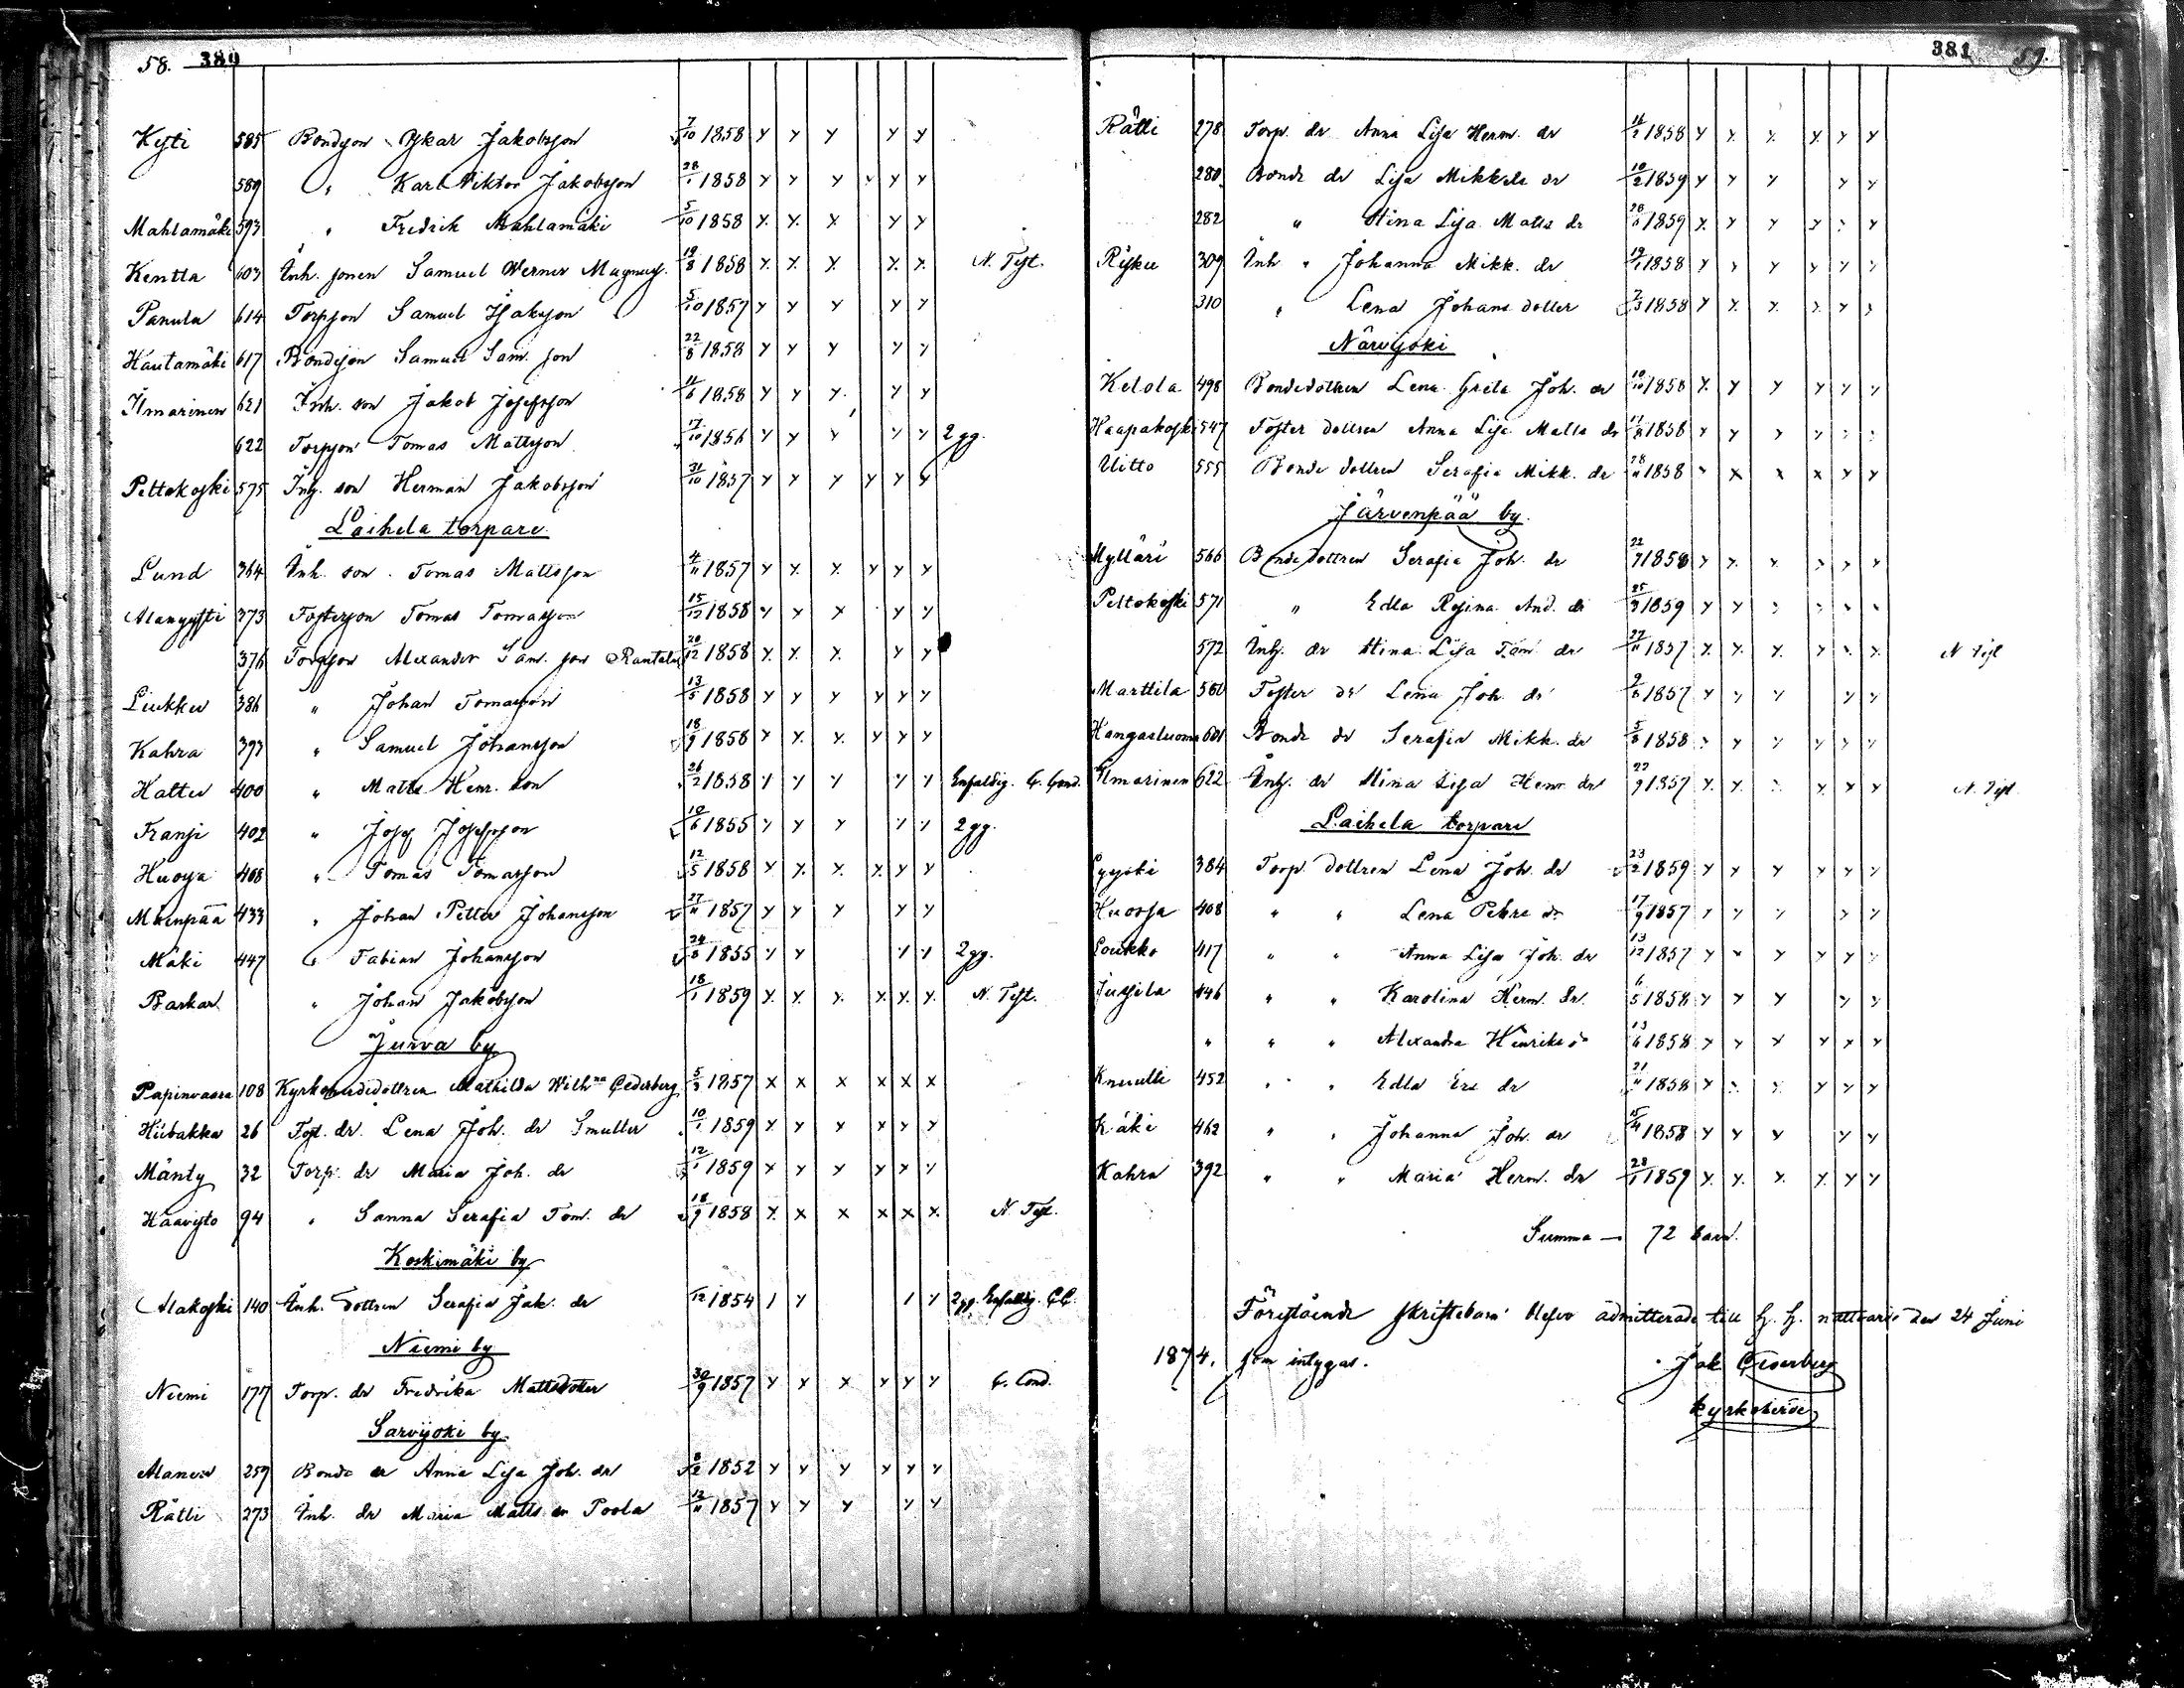 58. 380
Kyti 585 Bondson Oskar Jakobsson 7/10 1858 y y y y y
589 " Karl Viktor Jakobsson 28/1 1858 y y y y y y
Mahlamäki 593 " Fredrik Mahlamäki 5/10 1858 y y y y y
Kentta 603 Inh. sonen Samuel Werner Magnuss. 19/8 1858 y y y y y N. Test.
Panula 614 Torpson Samuel Isaksson 5/10 1857 y y y y y
Hautamäki 617 Bondeson Samuel Sam. son 22/8 1858 y y y y y
Ilmarinen 621 Inh. son Jakob Josefsson 1858 y y y y y
622 Torpson Tomas Mattsson 17/10 1856 y y y y y 2 gg.
Peltokoski 575 Inh. son Herman Jakobsson 31/10 1857 y y y y y y
Laihela torpare
Lund 364 Inh. son Tomas Mattsson 4/11 1857 y y y y y y
373 Fosterson Tomas Tomasson 15/12 1858 y y y y y
376 Torpson Alexander Sam. son Rantala 20/12 1858 y y y y y
Liukku 386 " Johan Tomasson 13/5 1858 y y y y y y
Kahra 393 " Samuel Johansson 18/9 1858 y y y y y y
Hatta 400 " Matts Henr. son 26/2 1858 y y y y y Enfaldig. C. Cond.
Fransi 402 " Josef Josefsson 10/6 1855 y y y y y 2 gg.
Huosa 408 " Tomas Tomasson 12/5 1858 y y y y y y
433 " Johan Petter Johansson 27/11 1857 y y y y y
Mäki 447 " Fabian Johansson 24/8 1855 y y y y 2 gg.
Barkar " Johan Jakobsson 18/1 1859 y y y y y y N. Test.
Jurva by
Papinvaara 108 Kyrkoherdedottren Mathilda Wilhna Cederberg 5/3 1857 x x x x x x
26 Torp. dr. Lena Joh. dr Smulter 10/1 1859 y y y y y y
Mänty 32 Torp. dr Maria Joh. dr 12/1 1859 y y y y y y
Haavisto 94 " Sanna Serafia Tom. dr 18/9 1858 x x x x x x N. Test.
Koskimäki by
Alakoski 140 Inh. dottren Serafia Jak. dr /12 1854 y y y y 2 gg. Enfaldig. C.C.
Niemi by
Niemi 177 Torp. dr Fredrika Mattsdotter 30/9 1857 y y x y y y C. Cond.
Sarvijoki by
Alanen 259 Bonde dr Anna Lisa Joh. dr 8/2 1852 y y y y y y
Rätti 273 Inh. dr Maria Matts dr Poola 12/11 1857 y y y y y
381 59.
Rätti 278 Torp. dr Anna Lisa Herm. dr 1858 y y y y y y
280 Bonde dr Lisa Mikkels dr 10/2 1859 y y y y y
282 " Stina Lisa Matts dr 1859 y y y y y y
Risku 309 Inh " Johanna Mikk. dr 19/1 1858 y y y y y y
310 " Lena Johans dotter 7/3 1858 y y y y y y
Närvijoki
Kelola 498 Bondedottren Lena Greta Joh. dr 19/10 1858 y y y y y y
Haapakoski 547 Foster dottren Anna Lisa Matts dr 17/8 1858 y y y y y y
Uitto 555 Bonde dottren Serafia Mikk. dr 28/11 1858 y x x x y y
Järvenpää by.
Mylläri 566 Bondedottren Serafia Joh. dr 22/7 1858 y y y y y y
Peltokoski 571 " Edla Regina And. dr 25/3 1859 y y y y y y
572 Inh. dr Stina Lisa Tom. dr 27/11 1857 y y y y y y N. Test
Marttila 560 Foster dr Lena Joh. dr 1857 y y y y y
Kangasluoma 601 Bonde dr Serafia Mikk. dr 5/8 1858 y y y y y y
Ilmarinen 622 Inh. dr Stina Lisa Henr. dr 1857 y y y y y y N. Test.
Laihela torpare
384 Torp. dottren Lena Joh. dr 23/2 1859 y y y y y y
Huosa 408 " " Lena Pehrs dr 17/9 1857 y y y y y
Loukko 417 " " Anna Lisa Joh. dr 13/12 1857 y y y y y y
Jussila 446 " " Karolina Herm. dr. 6/5 1858 y y y y y
" " " Alexandra Henriks dr 13/6 1858 y y y y y y
Knuutti 452 " " Edla Ers dr 21/11 1858 y y y y y y
Käki 462 " " Johanna Joh. dr 15/4 1858 y y y y y
Kahra 392 " " Maria Herm. dr 28/1 1859 y y y y y y
Summa — 72 barn.
Förestående skriftebarn blefvo admitterade till H. H. nattvard den 24 Juni
1874, som intygas. Jak. Cederberg
kyrkoherde